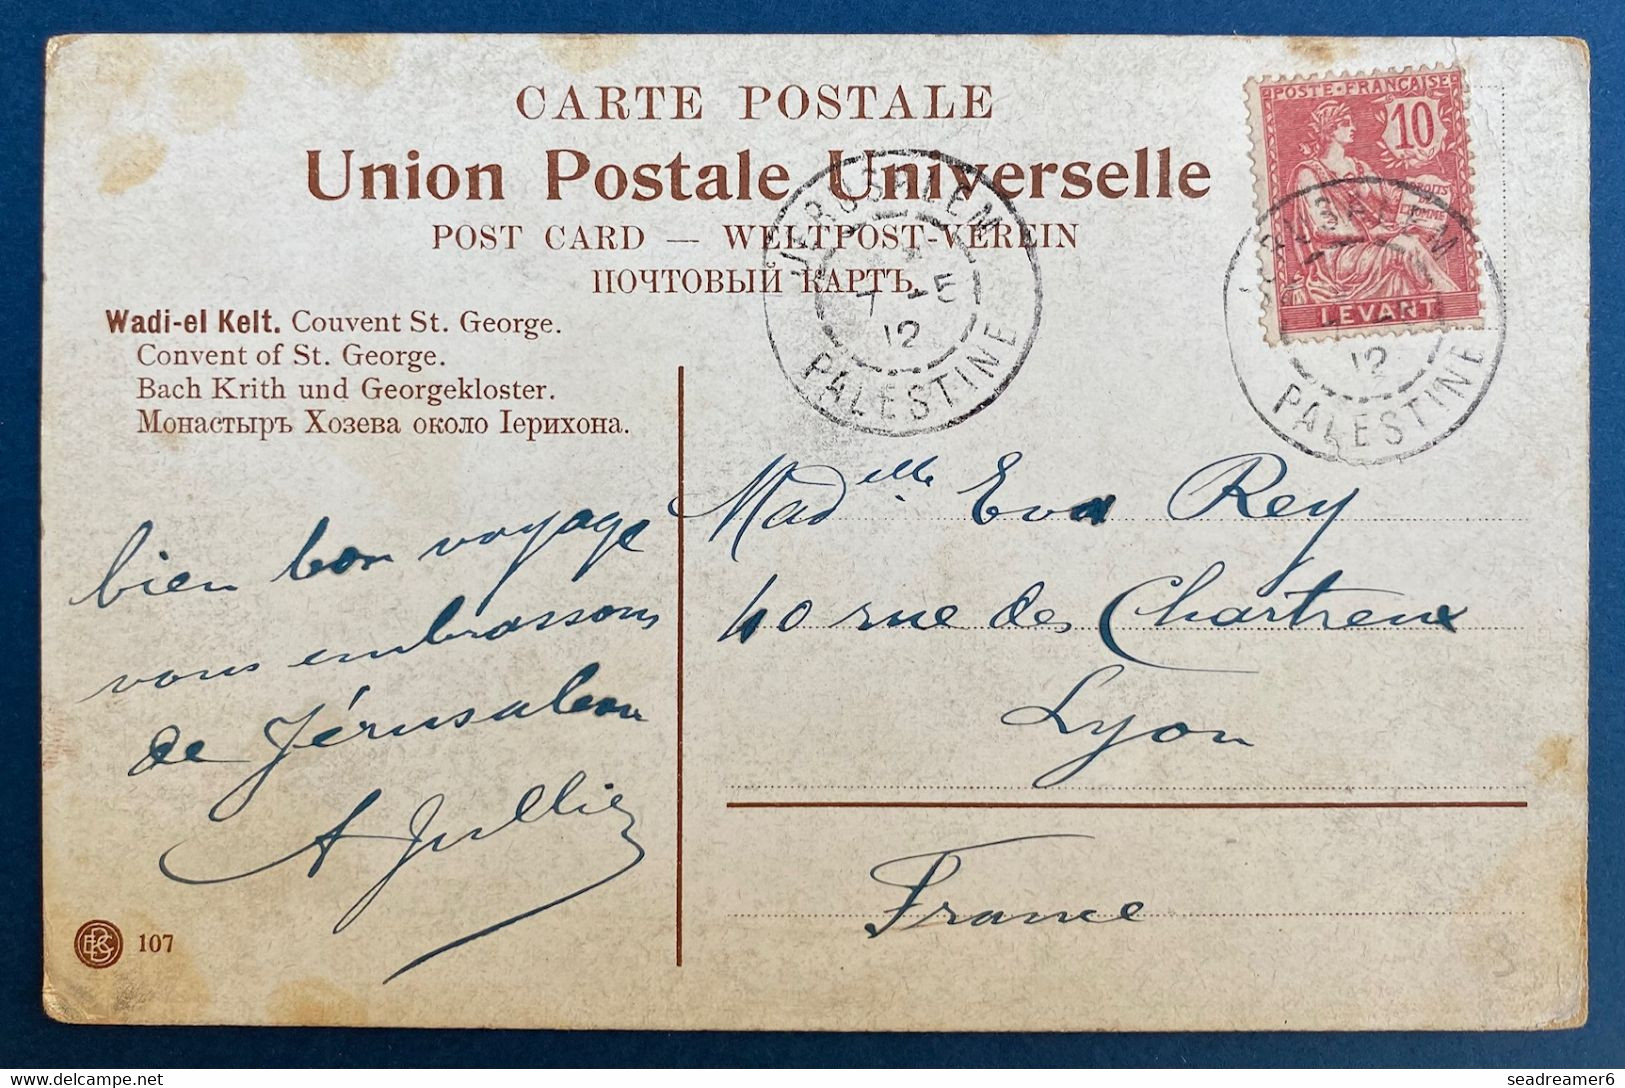 CARTE POSTALE
Union Postale Universelle
POST CARD — WELTPOST-VEREIN
ПОЧТОВЫЙ КАРТЪ.
POSTE·FRANÇAISE
10
DROITS
DE
L'HOMME
LEVANT
JERUSALEM
7 - 5
12
PALESTINE
JERUSALEM
12
PALESTINE
Wadi-el Kelt. Couvent St. George.
Convent of St. George.
Bach Krith und Georgekloster.
Монастыръ Хозева около Іерихона.
bien bon voyage
vous embrassons
de Jérusalem
A Jullien
Madelle Eva Rey
40 rue des Chartreux
Lyon
France
107
3
delcampe.net
seadreamer6